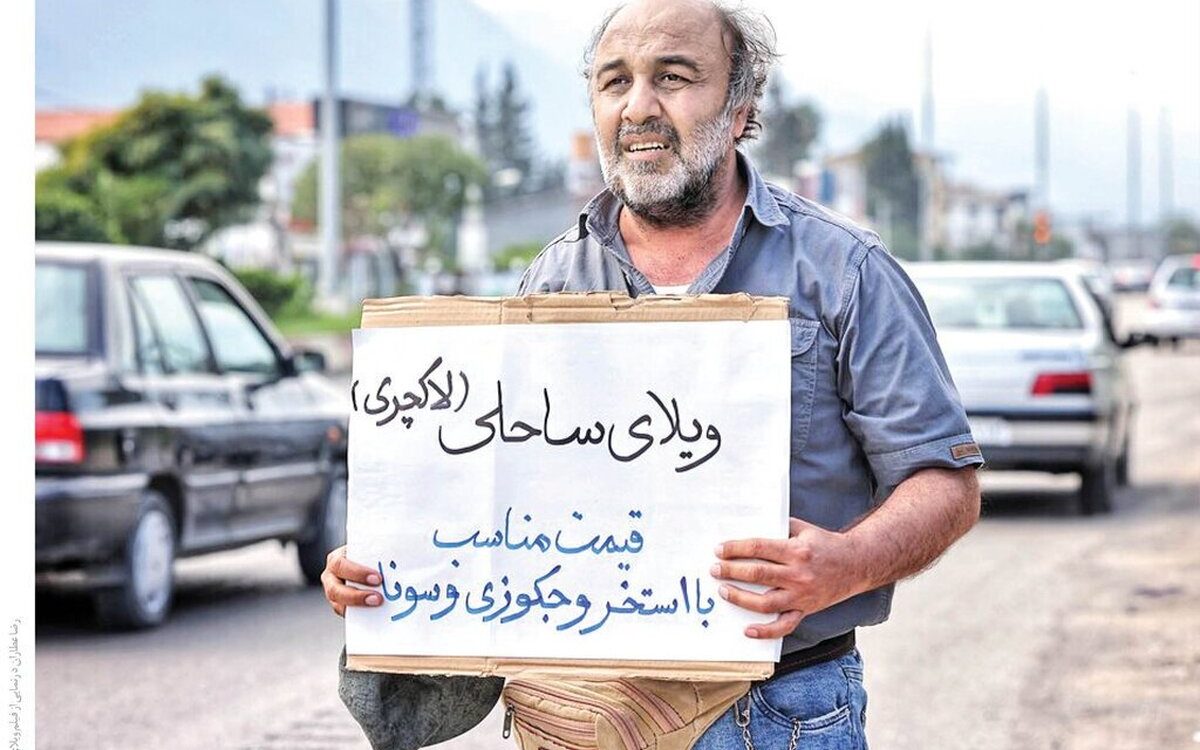 ویلای ساحلی (لاکچری)
قیمت مناسب
با استخر و جکوزی و سونا
رضا عطاران در نمایی از فیلم ویلا